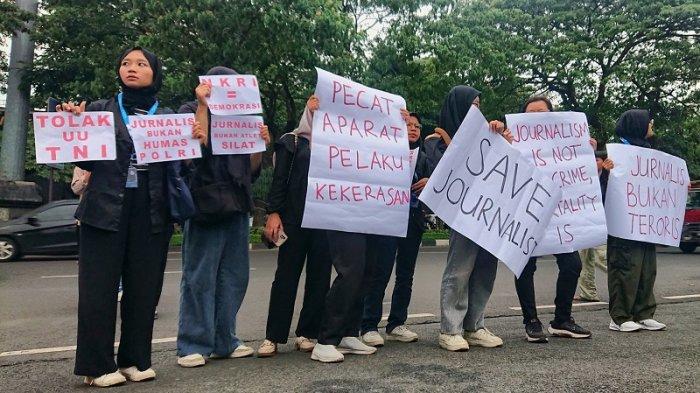 TOLAK
UU
TNI
JURNALIS
BUKAN
HUMAS
POLRI
NKRI
=
DEMOKRASI
JURNALIS
BUKAN ATLET
SILAT
PECAT
APARAT
PELAKU
KEKERASAN
SAVE
JOURNALIST
JOURNALISM
IS NOT
CRIME,
IS
JURNALIS
BUKAN
TERORIS